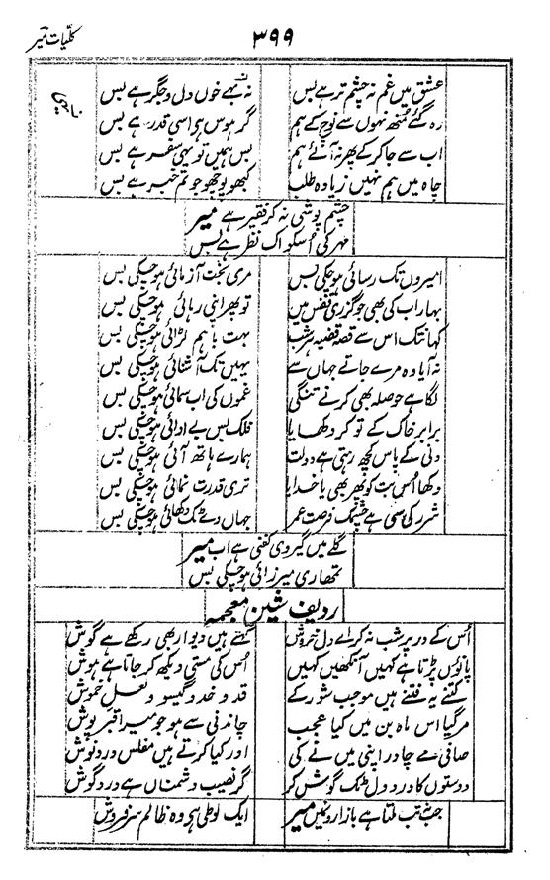 کلیات میر
۳۹۹
عشق میں غم نہ چشم تر ہے بس نہ تہے خوں دل و جگر ہے بس
رہ گئے منھ نہوں سے نوچ کے ہم گر ہوس ہی اسی قدر ہے بس
اب سے جا کر کے پھر نہ آئے ہم بس ہمیں تو یہی سفر ہے بس
چاہ میں ہم نہیں زیادہ طلب کبھو پوچھو جو تم خبر ہے بس
چشم پوشی نہ کر فقیر ہے میر
مہر کی اسکو اک نظر ہے بس
امیروں تک رسائی ہو چکی بس مری بخت آزمائی ہو چکی بس
بہار اب کی بھی جو گزری قفس میں تو پھر اپنی رہائی ہو چکی بس
کہانتک اس سے قصہ قضیہ ہر شب بہت باہم لڑائی ہو چکی بس
نہ آیا وہ مرے جاتے جہاں سے یہیں تک آشنائی ہو چکی بس
لگا ہے حوصلہ بھی کرنے تنگی غموں کی اب سمائی ہو چکی بس
برابر خاک کے تو کر دکھایا فلک بس بے ادائی ہو چکی بس
دنی کے پاس کچھ رہتی ہے دولت ہمارے ہاتھ آئی ہو چکی بس
دکھا اس بت کو پھر بھی یا خدایا تری قدرت نمائی ہو چکی بس
شرر کی سی ہے چشمک فرصت عمر جہاں دے ٹک دکھائی ہو چکی بس
گلے میں گیروی کفنی ہے اب میر
تمھاری میرزائی ہو چکی بس
ردیف شین معجمہ
اس کے در پر شب نہ کر اے دل خروش کہتے ہیں دیوار بھی رکھے ہے گوش
پانوں پڑتا ہے کہیں آنکھیں کہیں اس کی مستی دیکھ کر جاتا ہے ہوش
کتنے یہ فتنے ہیں موجب شور کے قد و خد و گیسو و لعل خموش
مر گیا اس ماہ بن میں کیا عجب چاندنی سے ہو جو میرا قبر پوش
صافی مے چادر اپنی میں نے کی اور کیا کرتے ہیں مفلس درد نوش
دوستوں کا درد دل ٹک گوش کر گر نصیب دشمناں ہے درد گوش
جب تب ملتا ہے بازار میں میر ایک لوطی ہے وہ ظالم سرفروش